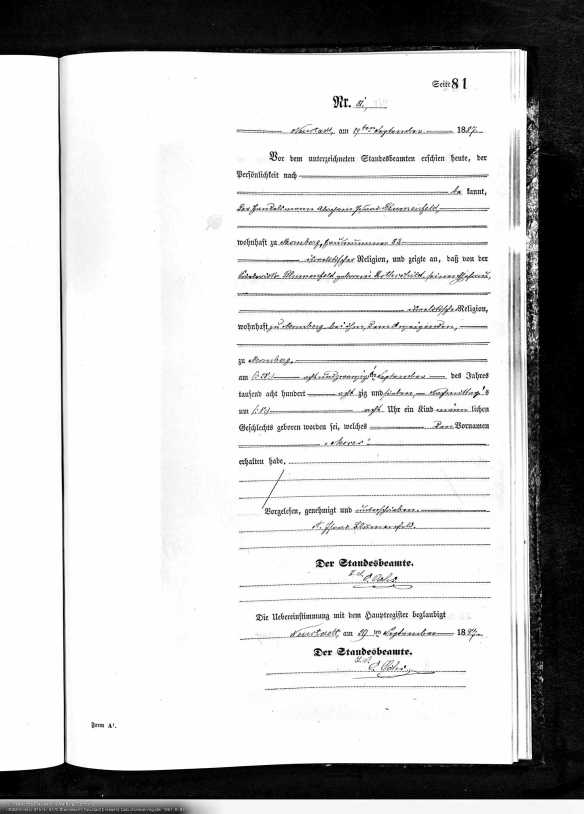 Seite 81
Nr. 81.
Neustadt, am 29ten September 1887.
Vor dem unterzeichneten Standesbeamten erschien heute, der
Persönlichkeit nach
be kannt,
der Handelsmann Blumenfeld,
wohnhaft zu Momberg, Hausnummer 82
israelitischer Religion, und zeigte an, daß von der
Blumenfeld geborene seiner Ehefrau,
israelitischer Religion,
wohnhaft zu Momberg bei ihm, dem Anzeigenden,
zu Momberg,
am (28) achtundzwanzigten September des Jahres
tausend acht hundert acht zig und sieben Nachmittags
um (8) acht Uhr ein Kind männ lichen
Geschlechts geboren worden sei, welches den Vornamen
"Moses"
erhalten habe.
Vorgelesen, genehmigt und unterschrieben.
Blumenfeld.
Der Standesbeamte.
Die Uebereinstimmung mit dem Hauptregister beglaubigt
Neustadt, am 29ten September 1887.
Der Standesbeamte.
Form A¹.